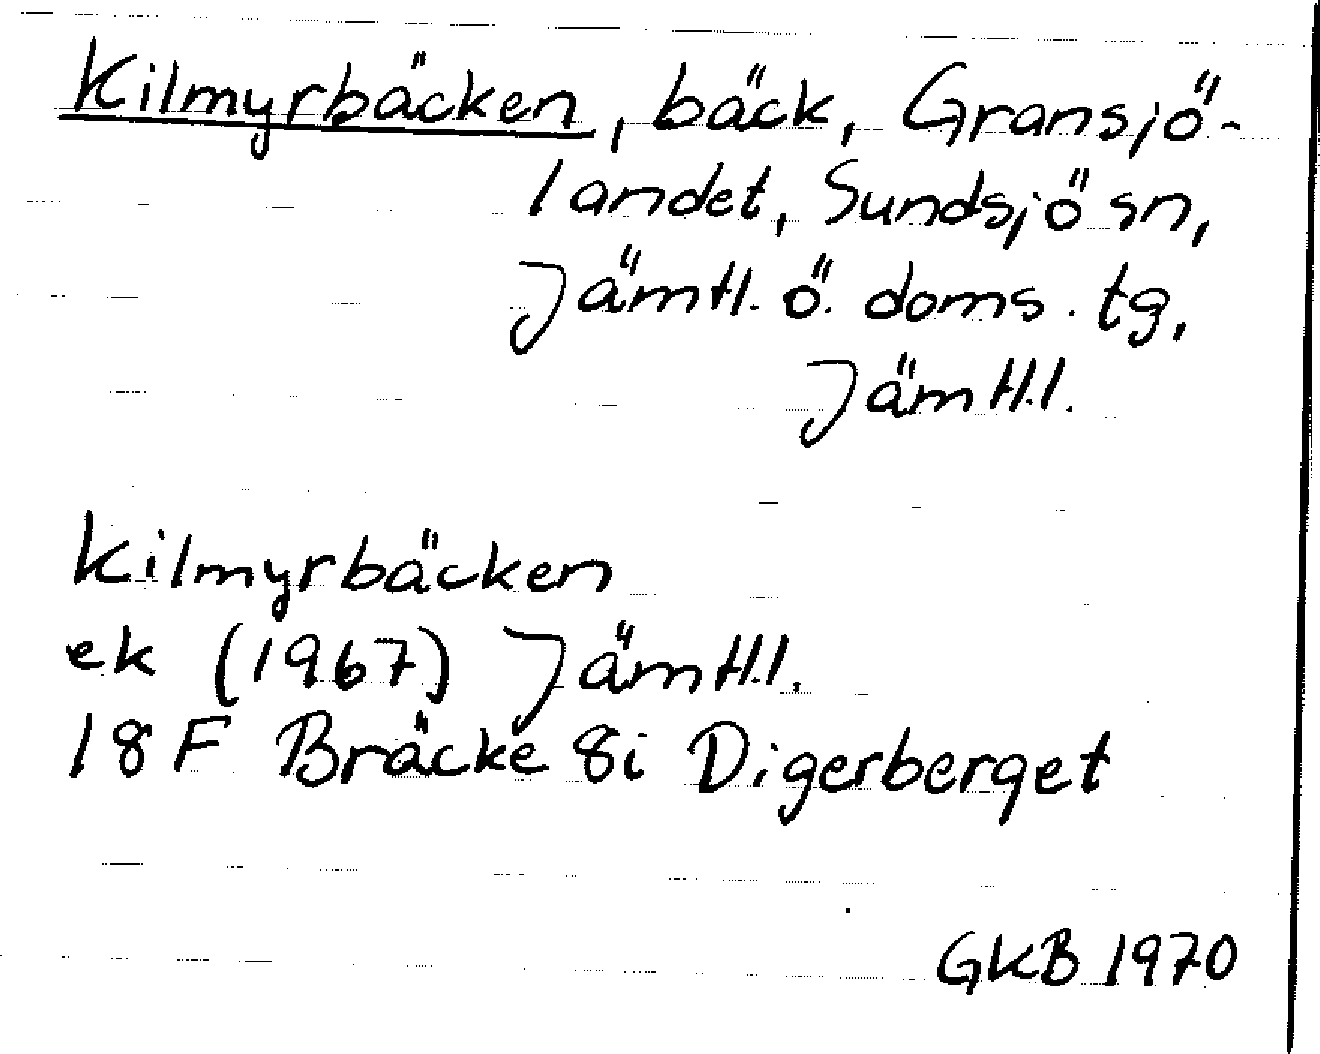 Kilmyrbäcken, bäck, Gransjö-
landet, Sundsjö sn,
Jämtl. ö. doms. tg,
Jämtl.l.
Kilmyrbäcken
ek (1967) Jämtl.l.
18F Bräcke 8i Digerberget
GKB 1970